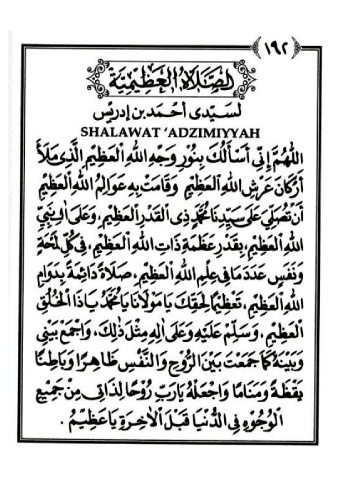 ١٩٢
الصَّلَاةُ الْعَظِيْمِيَّةُ
لسَيّدى أحْمَد بن إدريس
SHALAWAT 'ADZIMIYYAH
اَللّٰهُمَّ إِنِّى أَسْأَلُكَ بِنُوْرِ وَجْهِ اللهِ الْعَظِيْمِ الَّذِى مَلَأَ
أَرْكَانَ عَرْشِ اللهِ الْعَظِيْمِ وَقَامَتْ بِهِ عَوَالِمُ اللهِ الْعَظِيْمِ
أَنْ تُصَلِّىَ عَلَى سَيِّدِنَا مُحَمَّدٍ ذِى الْقَدْرِ الْعَظِيْمِ، وَعَلَى آلِ نَبِيِّ
اللهِ الْعَظِيْمِ، بِقَدْرِ عَظَمَةِ ذَاتِ اللهِ الْعَظِيْمِ، فِى كُلِّ لَمْحَةٍ
وَنَفَسٍ عَدَدَ مَا فِى عِلْمِ اللهِ الْعَظِيْمِ، صَلَاةً دَائِمَةً بِدَوَامِ
اللهِ الْعَظِيْمِ، تَعْظِيْمًا لِحَقِّكَ يَا مَوْلَانَا يَا مُحَمَّدُ يَا ذَا الْخُلُقِ
الْعَظِيْمِ، وَسَلِّمْ عَلَيْهِ وَعَلَى اٰلِهِ مِثْلَ ذٰلِكَ، وَاجْمَعْ بَيْنِى
وَبَيْنَهُ كَمَا جَمَعْتَ بَيْنَ الرُّوْحِ وَالنَّفْسِ ظَاهِرًا وَبَاطِنًا
يَقَظَةً وَمَنَامًا وَاجْعَلْهُ يَارَبِّ رُوْحًا لِذَاتِى مِنْ جَمِيْعِ
الْوُجُوْهِ فِى الدُّنْيَا قَبْلَ الْاٰخِرَةِ يَا عَظِيْمُ.